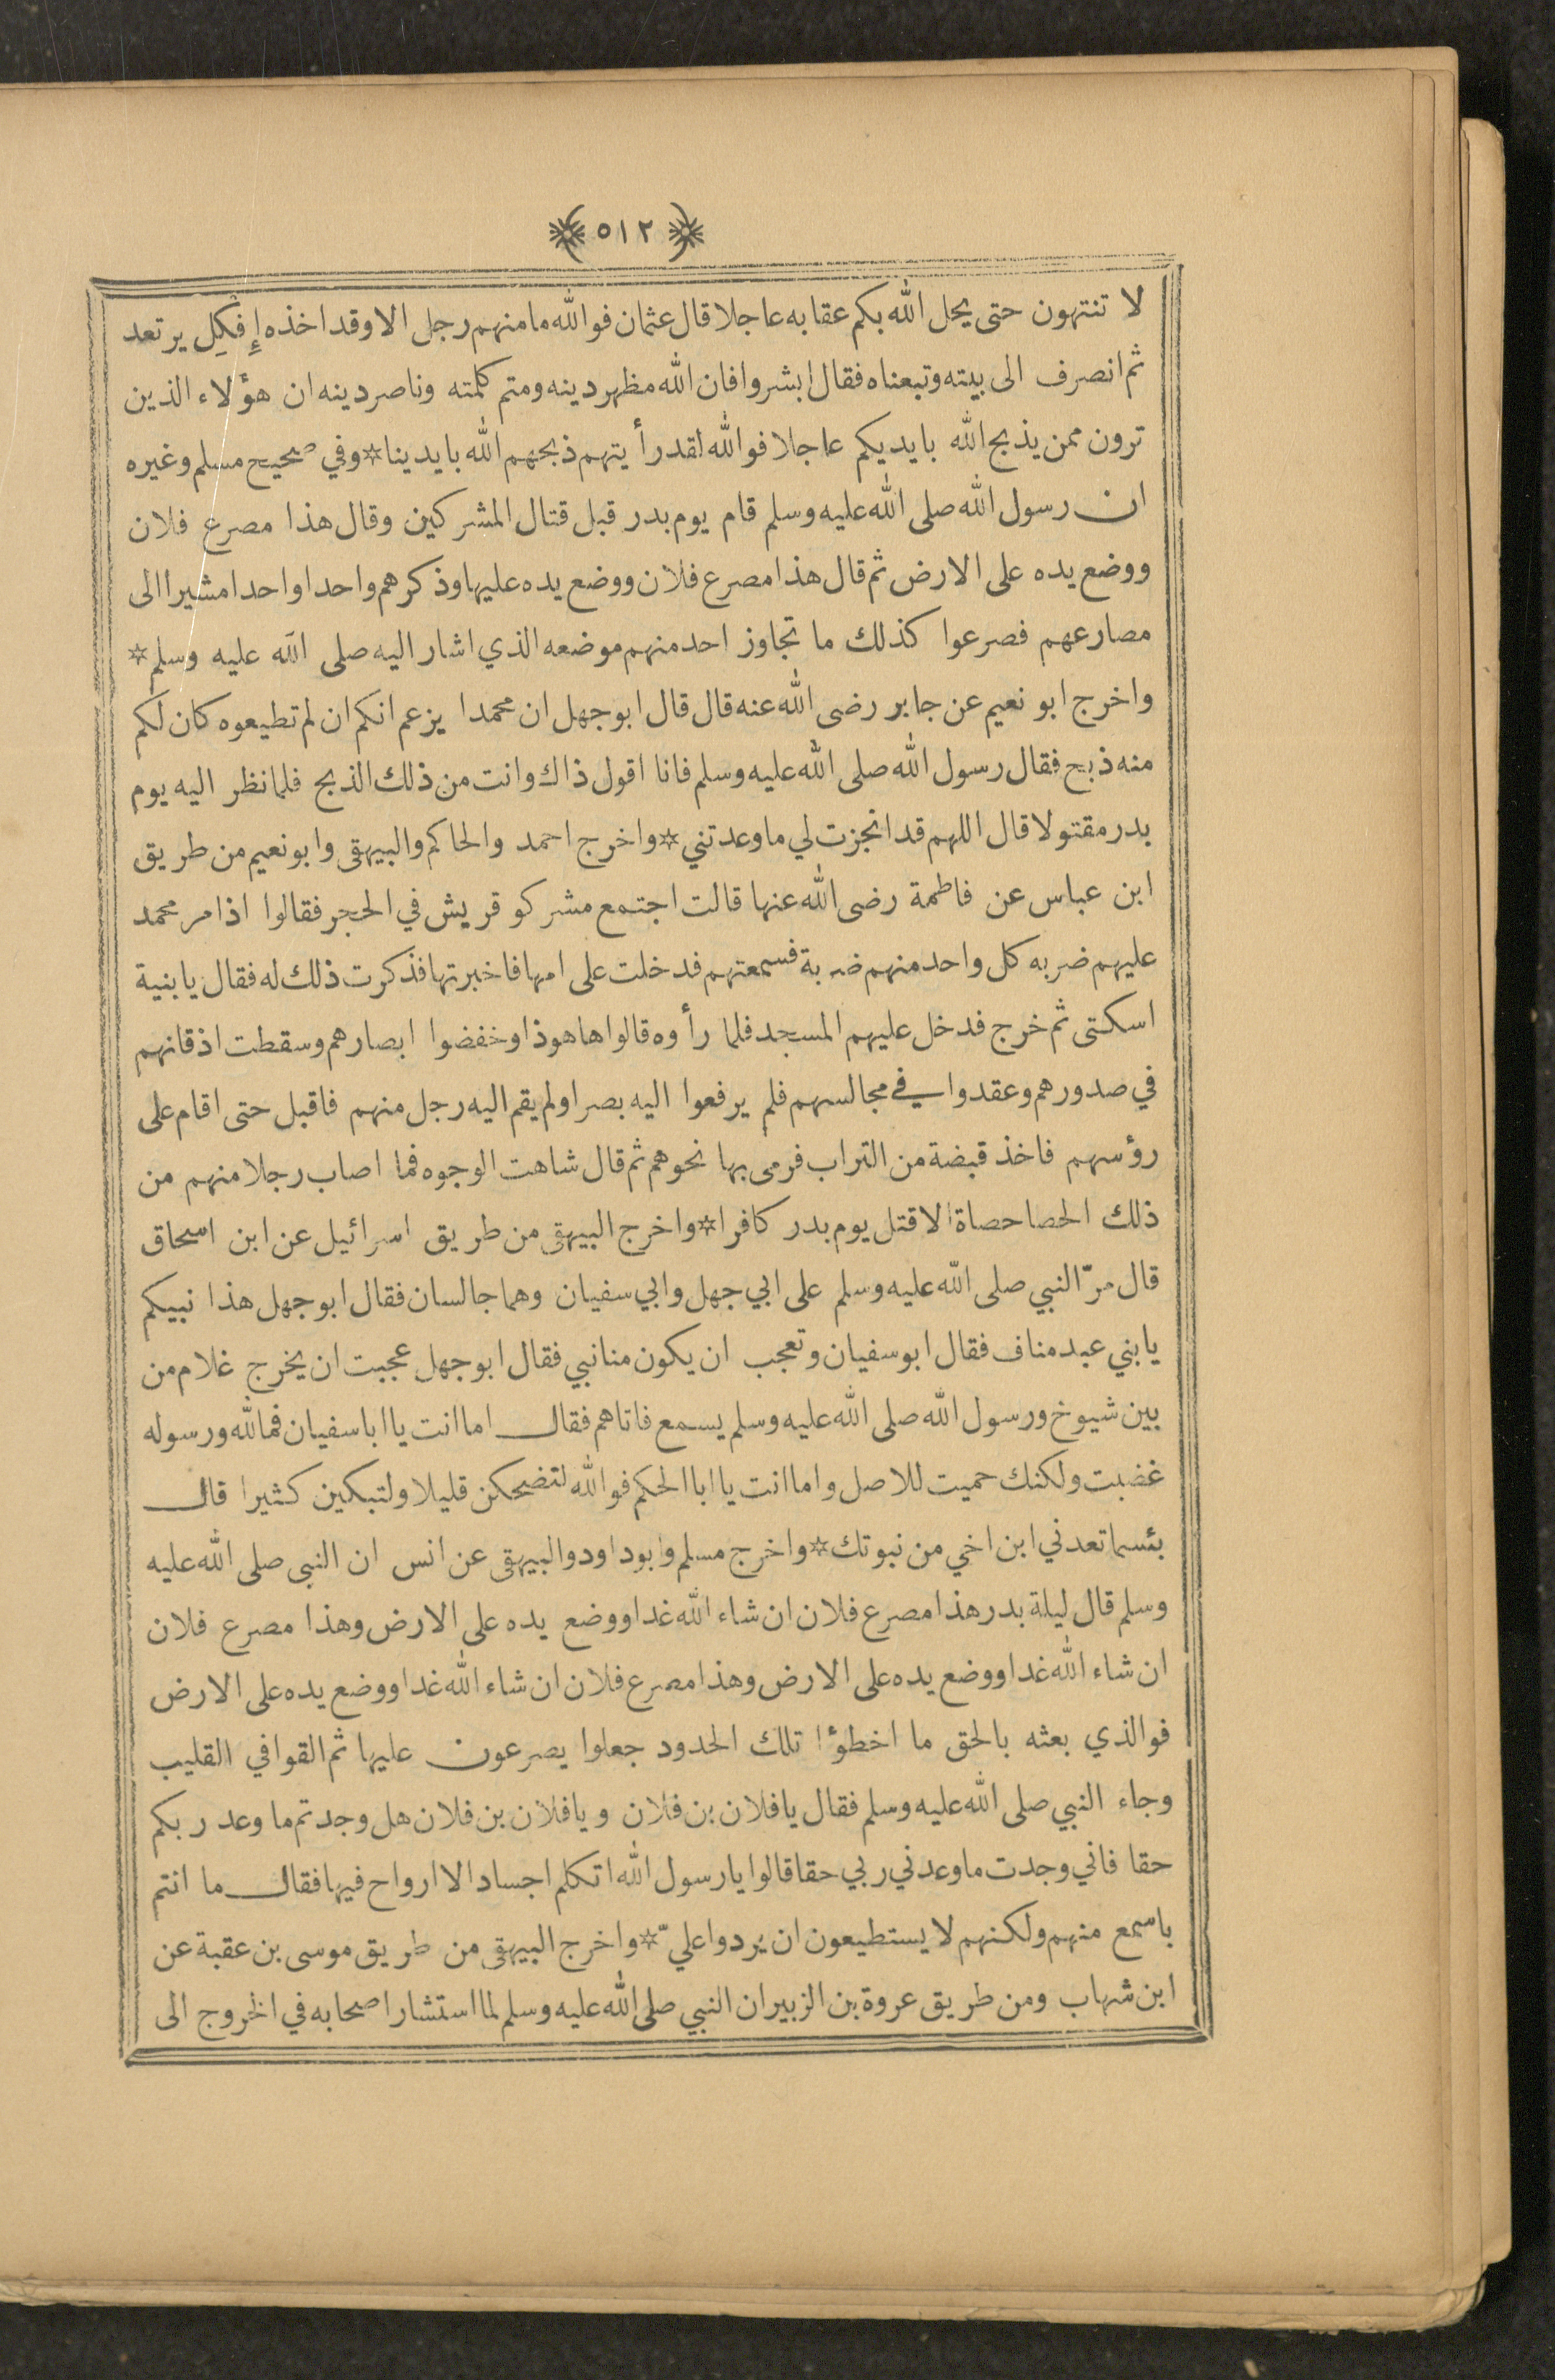 ٥١٢
لا تنتهون حتى يحل الله بكم عقابه عاجلا قال عثمان فوالله ما منهم رجل الا وقد اخذه إِفكِل يرتعد
ثم انصرف الى بيته وتبعناه فقال ابشروا فان الله مظهر دينه ومتم كلمته وناصر دينه ان هؤلاء الذين
ترون ممن يذبح الله بايديكم عاجلا فوالله لقد رأيتهم ذبحهم الله بايدينا * وفي صحيح مسلم وغيره
ان رسول الله صلى الله عليه وسلم قام يوم بدر قبل قتال المشركين وقال هذا مصرع فلان
ووضع يده على الارض ثم قال هذا مصرع فلان ووضع يده عليها وذكرهم واحدا واحدا مشيرا الى
مصارعهم فصرعوا كذلك ما تجاوز احد منهم موضعه الذي اشار اليه صلى الله عليه وسلم *
واخرج ابو نعيم عن جابر رضى الله عنه قال قال ابو جهل ان محمدا يزعم انكم ان لم تطيعوه كان لكم
منه ذبح فقال رسول الله صلى الله عليه وسلم فانا اقول ذاك وانت من ذلك الذبح فلما نظر اليه يوم
بدر مقتولا قال اللهم قد انجزت لي ما وعدتني * واخرج احمد والحاكم والبيهقى وابو نعيم من طريق
ابن عباس عن فاطمة رضى الله عنها قالت اجتمع مشركو قريش في الحجر فقالوا اذا مر محمد
عليهم ضربه كل واحد منهم ضربة فسمعتهم فدخلت على امها فاخبرتها فذكرت ذلك له فقال يا بنية
اسكتى ثم خرج فدخل عليهم المسجد فلما رأوه قالوا ها هوذا وخفضوا ابصارهم وسقطت اذقانهم
في صدورهم وعقدوا في مجالسهم فلم يرفعوا اليه بصرا ولم يقم اليه رجل منهم فاقبل حتى اقام على
رؤسهم فاخذ قبضة من التراب فرمى بها نحوهم ثم قال شاهت الوجوه فما اصاب رجلا منهم من
ذلك الحصا حصاة الا قتل يوم بدر كافرا * واخرج البيهقى من طريق اسرائيل عن ابن اسحاق
قال مرّ النبي صلى الله عليه وسلم على ابي جهل وابي سفيان وهما جالسان فقال ابو جهل هذا نبيكم
يا بني عبد مناف فقال ابو سفيان وتعجب ان يكون منا نبي فقال ابو جهل عجبت ان يخرج غلام من
بين شيوخ ورسول الله صلى الله عليه وسلم يسمع فاتاهم فقال اما انت يا ابا سفيان فما لله ورسوله
غضبت ولكنك حميت للاصل واما انت يا ابا الحكم فوالله لتضحكن قليلا ولتبكين كثيرا قال
بئسما تعدني ابن اخي من نبوتك * واخرج مسلم وابو داود والبيهقى عن انس ان النبى صلى الله عليه
وسلم قال ليلة بدر هذا مصرع فلان ان شاء الله غدا ووضع يده على الارض وهذا مصرع فلان
ان شاء الله غدا ووضع يده على الارض وهذا مصرع فلان ان شاء الله غدا ووضع يده على الارض
فوالذي بعثه بالحق ما اخطؤا تلك الحدود جعلوا يصرعون عليها ثم القوا في القليب
وجاء النبي صلى الله عليه وسلم فقال يا فلان بن فلان ويا فلان بن فلان هل وجدتم ما وعد ربكم
حقا فاني وجدت ما وعدني ربي حقا قالوا يا رسول الله اتكلم اجساد الا ارواح فيها فقال ما انتم
باسمع منهم ولكنهم لا يستطيعون ان يردوا عليّ * واخرج البيهقى من طريق موسى بن عقبة عن
ابن شهاب ومن طريق عروة بن الزبير ان النبي صلى الله عليه وسلم لما استشار اصحابه في الخروج الى